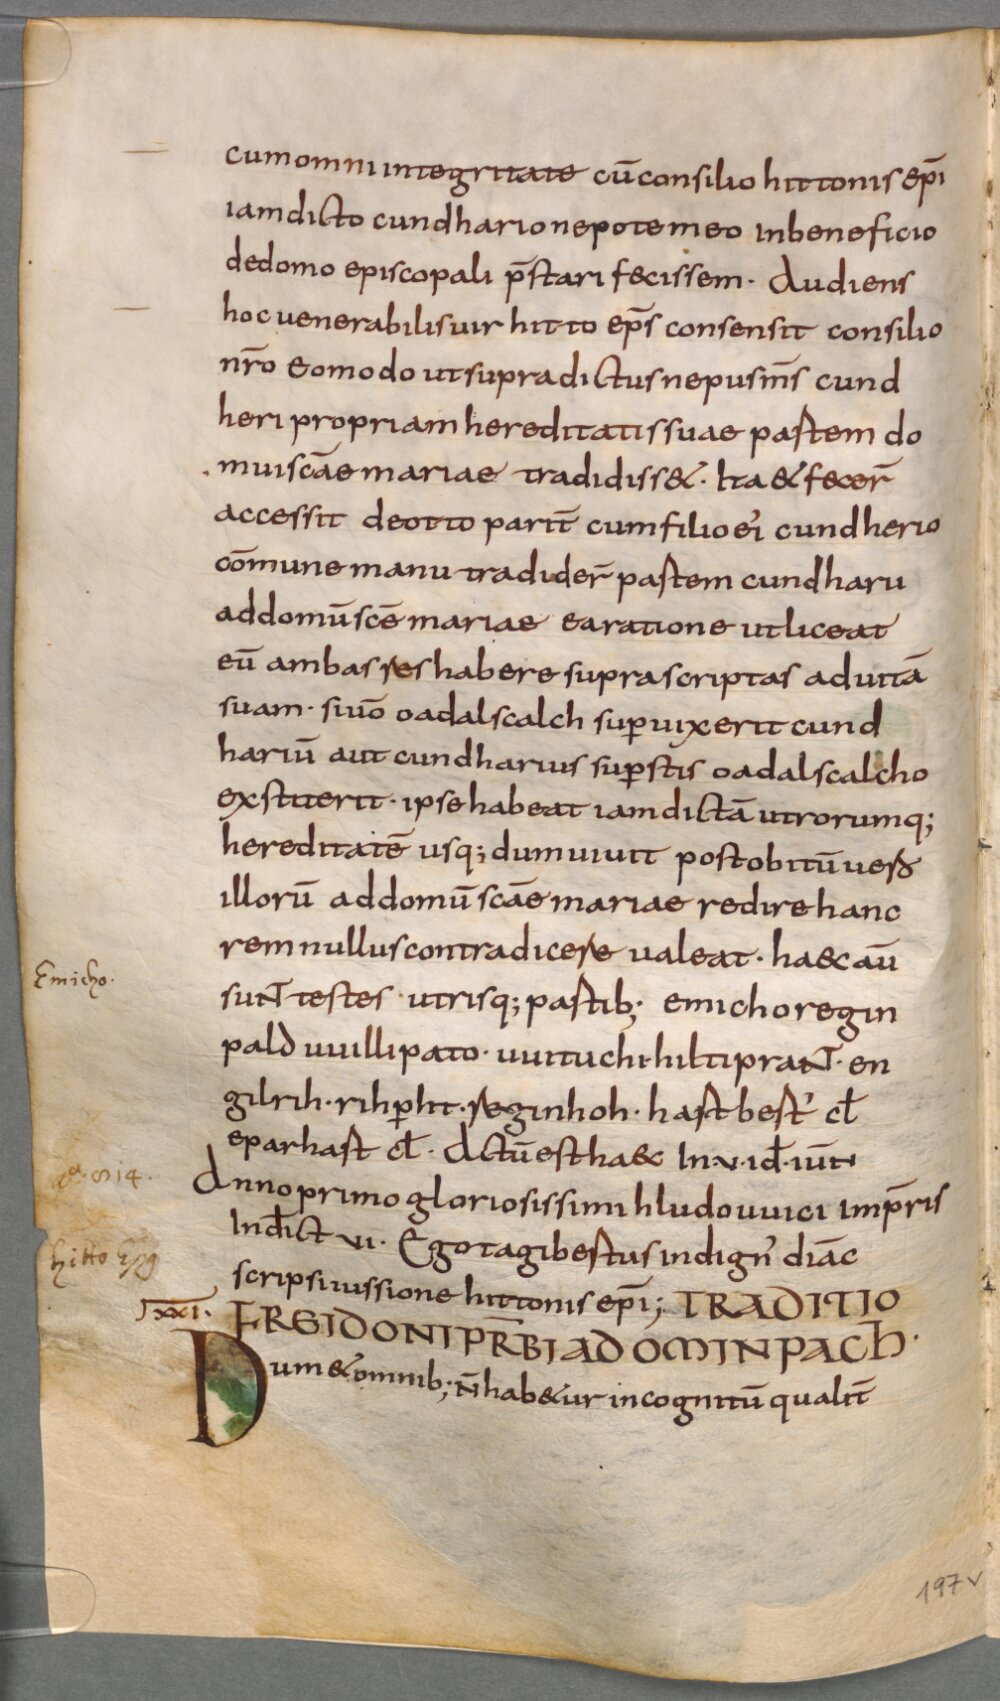 cum omni integritate cū consilio hittonis ep̄i
iamdicto cundhario nepote meo in beneficio
de domo episcopali p̄stari fecissem· Audiens
hoc uenerabilis uir hitto ep̄s consensit consilio
nr̄o eomodo ut supradictus nepus m̄s cund
heri propriam hereditatis suae partem do
mui sc̄ae mariae tradidiss&· Ita & fecer̄
accessit deotto parit̄ cum filio ei cundherio
cōmune manu tradider̄ partem cundharii
ad domū sc̄e mariae ea ratione ut liceat
eū ambas res habere suprascriptas ad uitā
suam· siuō oadalscalch sup̄uixerit cund
hariū aut cundharius sup̄stis oadalscalcho
exstiterit· ipse habeat iamdictā utrorumq;
hereditatē usq; dum uiuit post obitū uero
illorū ad domū sc̄ae mariae redire hanc
rem nullus contradicere ualeat· haec aū
sunt testes utrisq; partib; emicho regin
pald uuillipato· uuituchi· hiltiprant· en
gilrih· rihp̄ht· reginhoh· hartbert' cl̄
eparhart cl̄· Actū est haec In· v· id̄· iūn
Emicho·
Anno primo gloriosissimi hludouuici imp̄ris
Ind̄ict vi· Ego tagibertus indign' diāc
aº· 814·
scripsi iussione hittonis ep̄i; TRADITIO
hitto Ep̄s
FREIDONI PR̄BI AD OMINPACH·
Dum & omnib; n̄ hab&ur incognitū qualit̄
197v